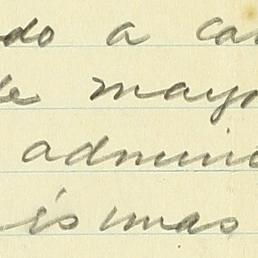 do a ca
le mayo
admini
is unas